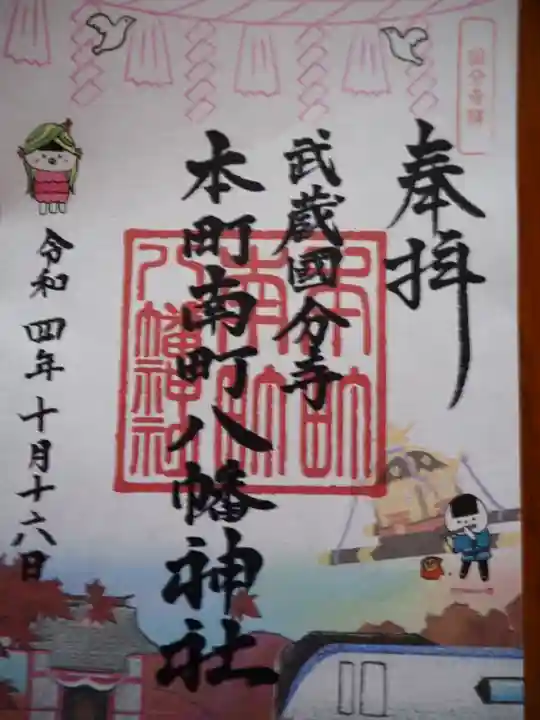 奉拝
武蔵國分寺
本町南町八幡神社
本町
南町
八幡神社
令和四年十月十六日